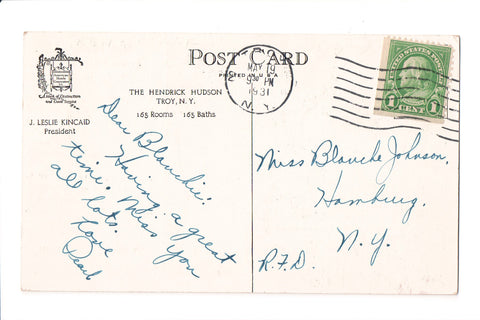 POST CARD
PRINTED IN U S A
THE HENDRICK HUDSON
TROY, N.Y.
165 Rooms 165 Baths
J. LESLIE KINCAID
President
MAY 19
9 30 PM
1931
N.Y.
UNITED STATES POSTAGE
1 CENT 1
Dear Blanchie:
Having a great
time. Miss you
all lots.
Love
Pearl
Miss Blanche Johnson,
Hamburg,
N.Y.
R.F.D.